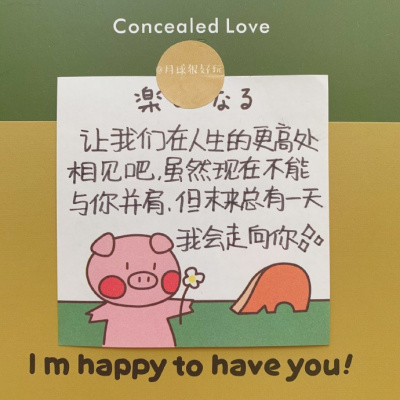 Concealed Love
@月球很好玩
楽 なる
让我们在人生的更高处
相见吧,虽然现在不能
与你并肩,但未来总有一天
我会走向你
I m happy to have you!